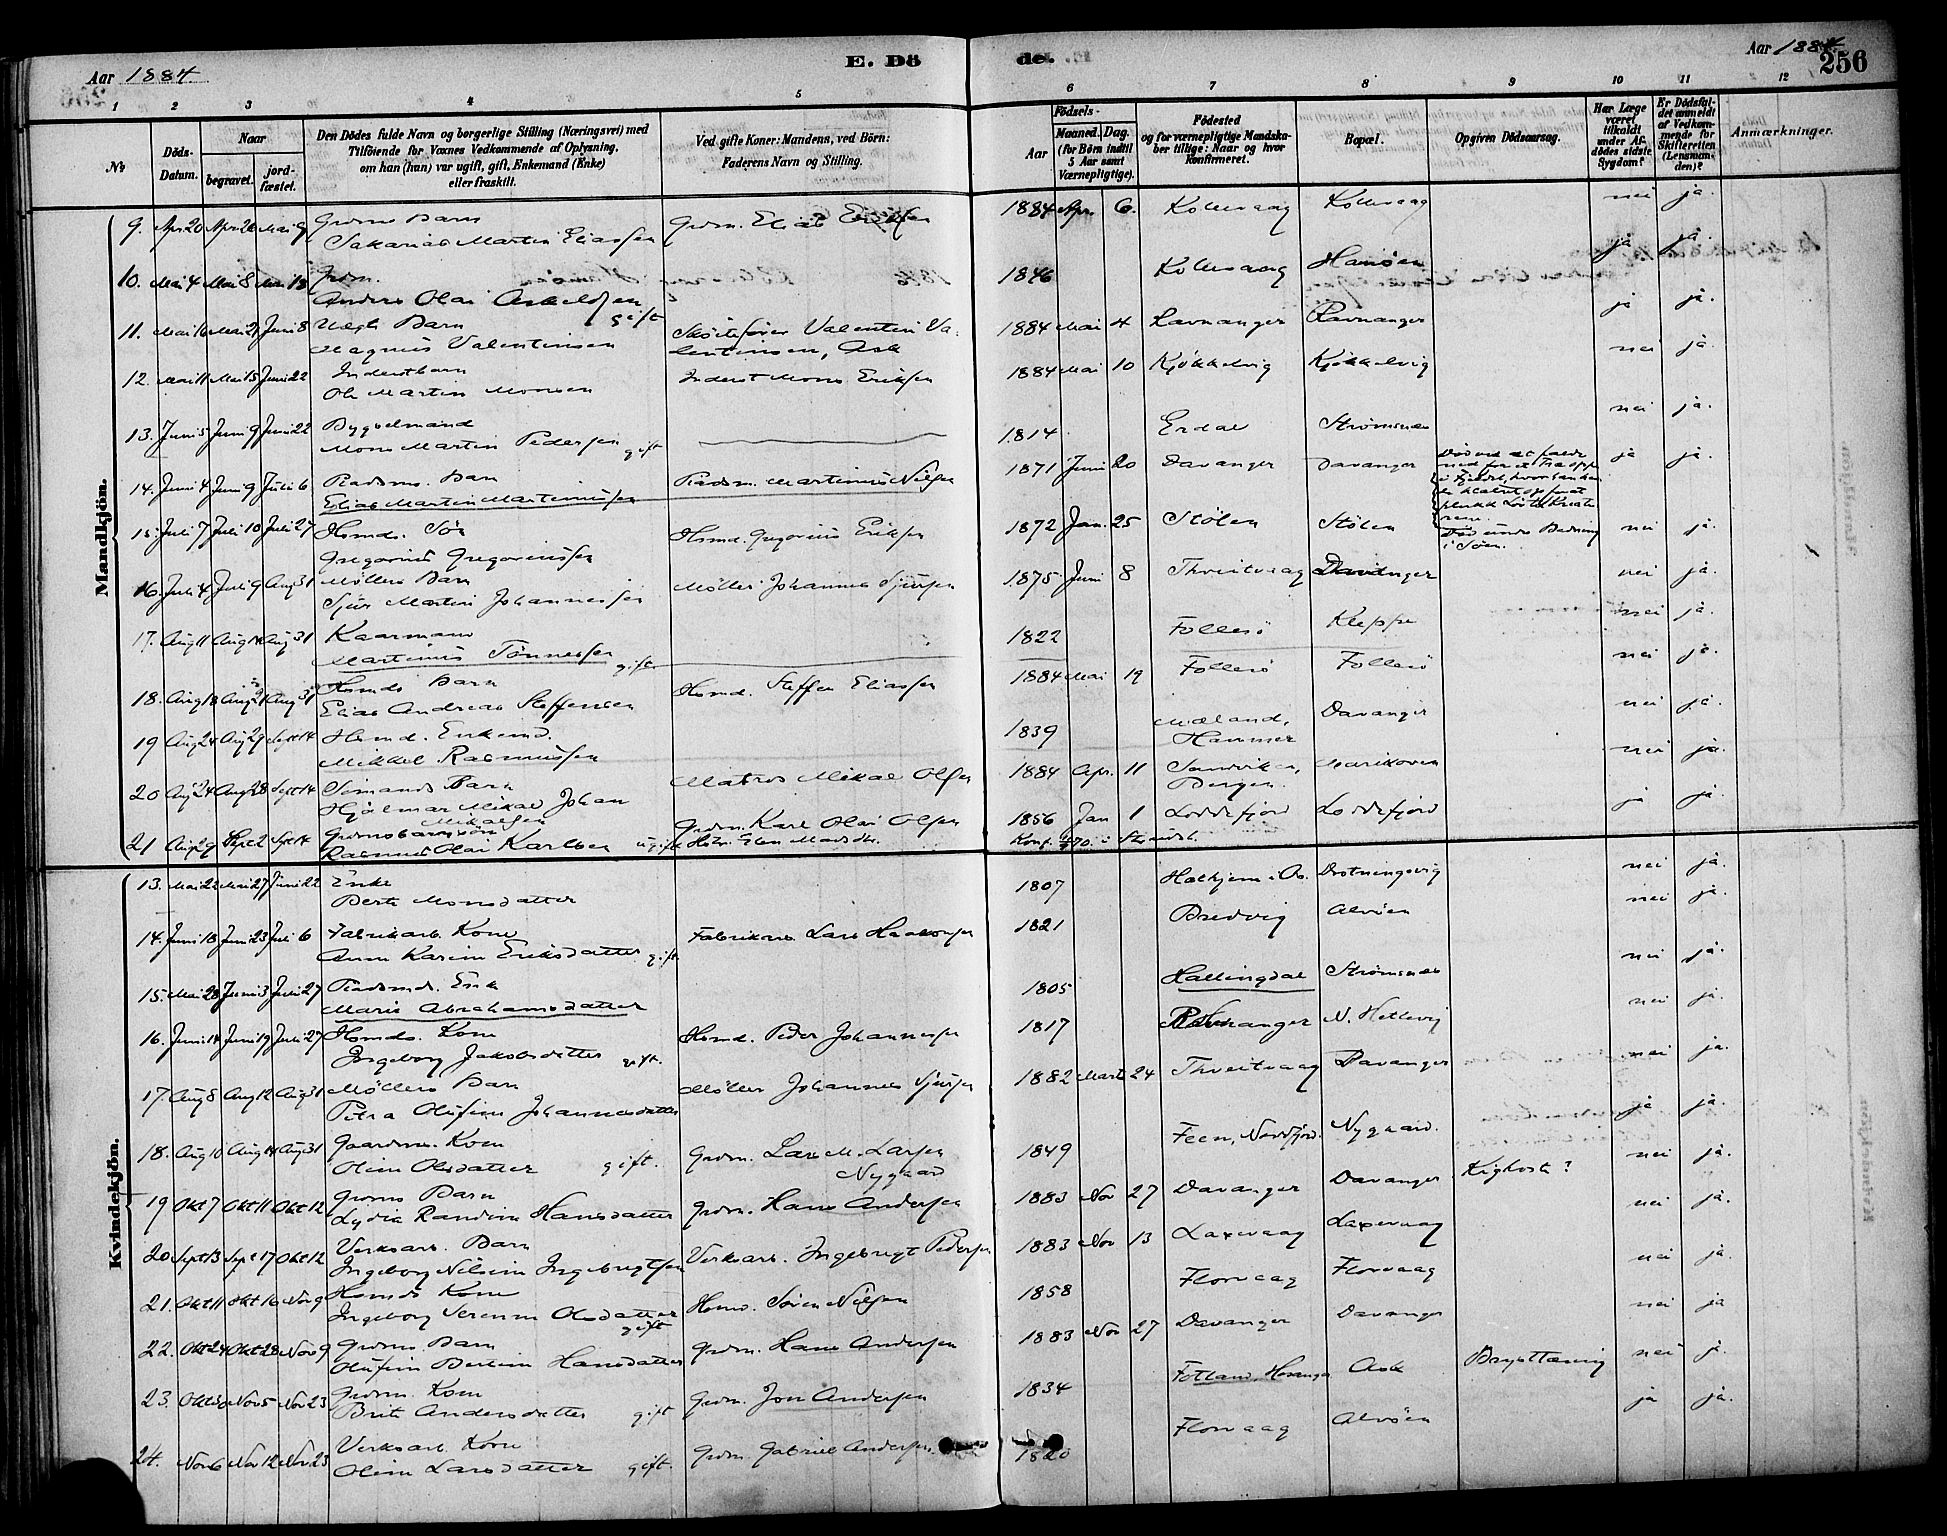 Aar 1884
E. Dö
de.
Aar 1884
256
1 2 3 4 5 6 7 8 9 10 11 12
No
Döds-Datum.
Naar
begravet.
jord-fæstet.
Den Dödes fulde Navn og borgerlige Stilling (Næringsvei) med Tilföiende for Voxnes Vedkommende af Oplysning, om han (hun) var ugift, gift, Enkemand (Enke) eller fraskilt.
Ved gifte Koner: Mandens, ved Börn: Faderens Navn og Stilling.
Födsels-
Aar
Maaned. Dag.
(for Börn indtil 5 Aar samt Værnepligtige).
Födested og for værnepligtige Mandska-ber tillige: Naar og hvor Konfirmeret.
Bopæl.
Opgiven Dödsaarsag.
Har Læge været tilkaldt under Af-dödes sidste Sygdom?
Er Dödsfal-det anmeldt af Vedkom-mende for Skifteretten (Lensman-den)?
Anmærkninger.
Mandkjön.
9. Apr 20 Apr 26 Mai 9 Grdms Barn Grdm. Elias 1884 Apr. 6. Kollevaag Kollevaag nei ja.
Sakarias Martin Eliassen
10. Mai 4 Mai 8 Mai Grdm. 1846 Kollevaag Hanöen ja ja.
Anders Olai Askeldsen gift
11. Mai 16 Mai 21 Juni 8 Uægte Barn Skøitefører Valentin Va- 1884 Mai 4 Ravnanger Ravnanger ja ja.
Magnus Valentinsen lentinsen, Ask
12. Mai 11 Mai 15 Juni 22 Inderstbarn Inderst Mons Eriksen 1884 Mai 10 Kjøkkelvig Kjøkkelvig nei ja.
Ole Martin Monsen
13. Juni 5 Juni 9 Juni 22 Bygselmand 1814 Erdal Strømsnes nei ja.
Mons Martin Pedersen gift
14. Juni 4 Juni 9 Juli 6 Pladsms. Barn Pladsm. Martinus Nilsen 1871 Juni 20 Davanger Davanger Død ved at falde ned for et Træ oppe i Fjeldet, hvor han ja ja.
Elias Martin Martinussen
15. Juli 7 Juli 10 Juli 27 Husmds. Søn Husmd. Gregorius Eriksen 1872 Jan. 25 Stølen Stølen Død under Badning i Søen. nei ja.
Gregorius Gregoriussen
16. Juli 4 Juli 9 Aug 31 Møllers Barn Møller Johannes Sjursen 1875 Juni 8 Thveitvaag Davanger nei ja.
Sjur Martin Johannessen
17. Aug 11 Aug 14 Aug 31 Kaarmand 1822 Follesø Kleppe nei ja.
Martinus Tønnessen gift
18. Aug 18 Aug 21 Aug 31 Husmds Barn Husmd. Steffen Eliassen 1884 Mai 19 Follesø Follesø nei ja.
Elias Andreas Steffensen
19 Aug 24 Aug 29 Sept 14 Husmd. Enkemd. 1839 Mæland, Hammer Davanger nei ja.
Mikkel Rasmussen
20 Aug 24 Aug 28 Sept 14 Sømands Barn Matros Mikal Olsen 1884 Apr. 11 Sandviken, Bergen. Marikoven nei ja.
Hjalmar Mikal Johan Mikalsen
21 Aug 29 Sept 2 Sept 14 Grdm. Karl Olai Olsen 1856 Jan 1 Loddefjord Loddefjord ja ja.
Rasmus Olai Karlsen ugift Konf. 1870 i
Kvindekjön.
13. Mai 22 Mai 27 Juni 22 Enke 1807 Drotningsvig nei ja.
Berte Monsdatter
14. Juni 18 Juni 23 Juli 6 Fabrikarb. Kone Fabrikarb. Lars Haakonsen 1821 Bredvig Alvøen nei ja.
Anne Karine Eriksdatter gift
15. Mai 28 Juni 3 Juli 27 Pladsmd. Enke 1805 Hallingdal Strømsnes nei ja.
Marie Abrahamsdatter
16. Juni 14 Juni 19 Juli 27 Husmds. Kone Husmd. Peder Johannessen 1817 N. Hetlevig nei ja.
Ingeborg Jakobsdatter gift.
17. Aug 8 Aug 12 Aug 31 Møllers Barn Møller Johannes Sjursen 1882 Marts 24 Thveitvaag Davanger nei ja.
Petra Olufine Johannesdatter
18. Aug 10 Aug 14 Aug 31 Gaardms. Kone Grdm. Lars M. Larsen Nygaard 1849 Feen, Nordfjord. Nygaard. ja ja.
Oline Olsdatter gift.
19 Okt 7 Okt 11 Okt 12 Grdms Barn Grdm. Hans Andersen 1883 Nov 27 Davanger Davanger Kighoste? nei ja.
Lydia Randine Hansdatter
20 Sept 13 Sept 17 Okt 12 Verksarb. Barn Verksarb. Ingebrigt Pedersen 1883 Nov 13 Laxevaag Laxevaag nei ja.
Ingeborg Nilsine Ingebrigtsen
21. Okt 11 Okt 16 Nov 9 Husmds Kone Husmd. Søren Nilsen 1858 Florvaag Florvaag nei ja.
Ingeborg Serine Olsdatter gift
22. Okt 24 Okt 28 Nov 9 Grdms. Barn Grdm. Hans Andersen 1883 Nov 27 Davanger Davanger nei ja
Olufine Berline Hansdatter
23. Okt 30 Nov 5 Nov 23 Grdms. Kone Grdm. Jon Andersen 1834 Fotland, Hosanger Ask Brysttæring nei ja.
Brite Andersdatter gift
24. Nov 6 Nov 12 Nov 23 Verksarb. Kone Grdm. Gabriel Andersen 1820 Florvaag Alvøen ja ja.
Oline Larsdatter gift.